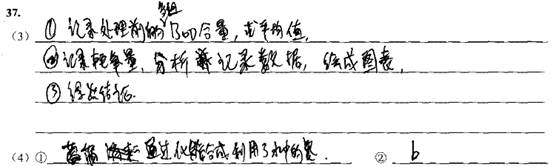 37.
(3) ① 记录处理前的多组BOD含量，求平均值.
②记录 含量, 分析 记录数据, 绘成图表.
③ 得出结论.
(4) ① 通过化能合成利用了水中的氨. ② b